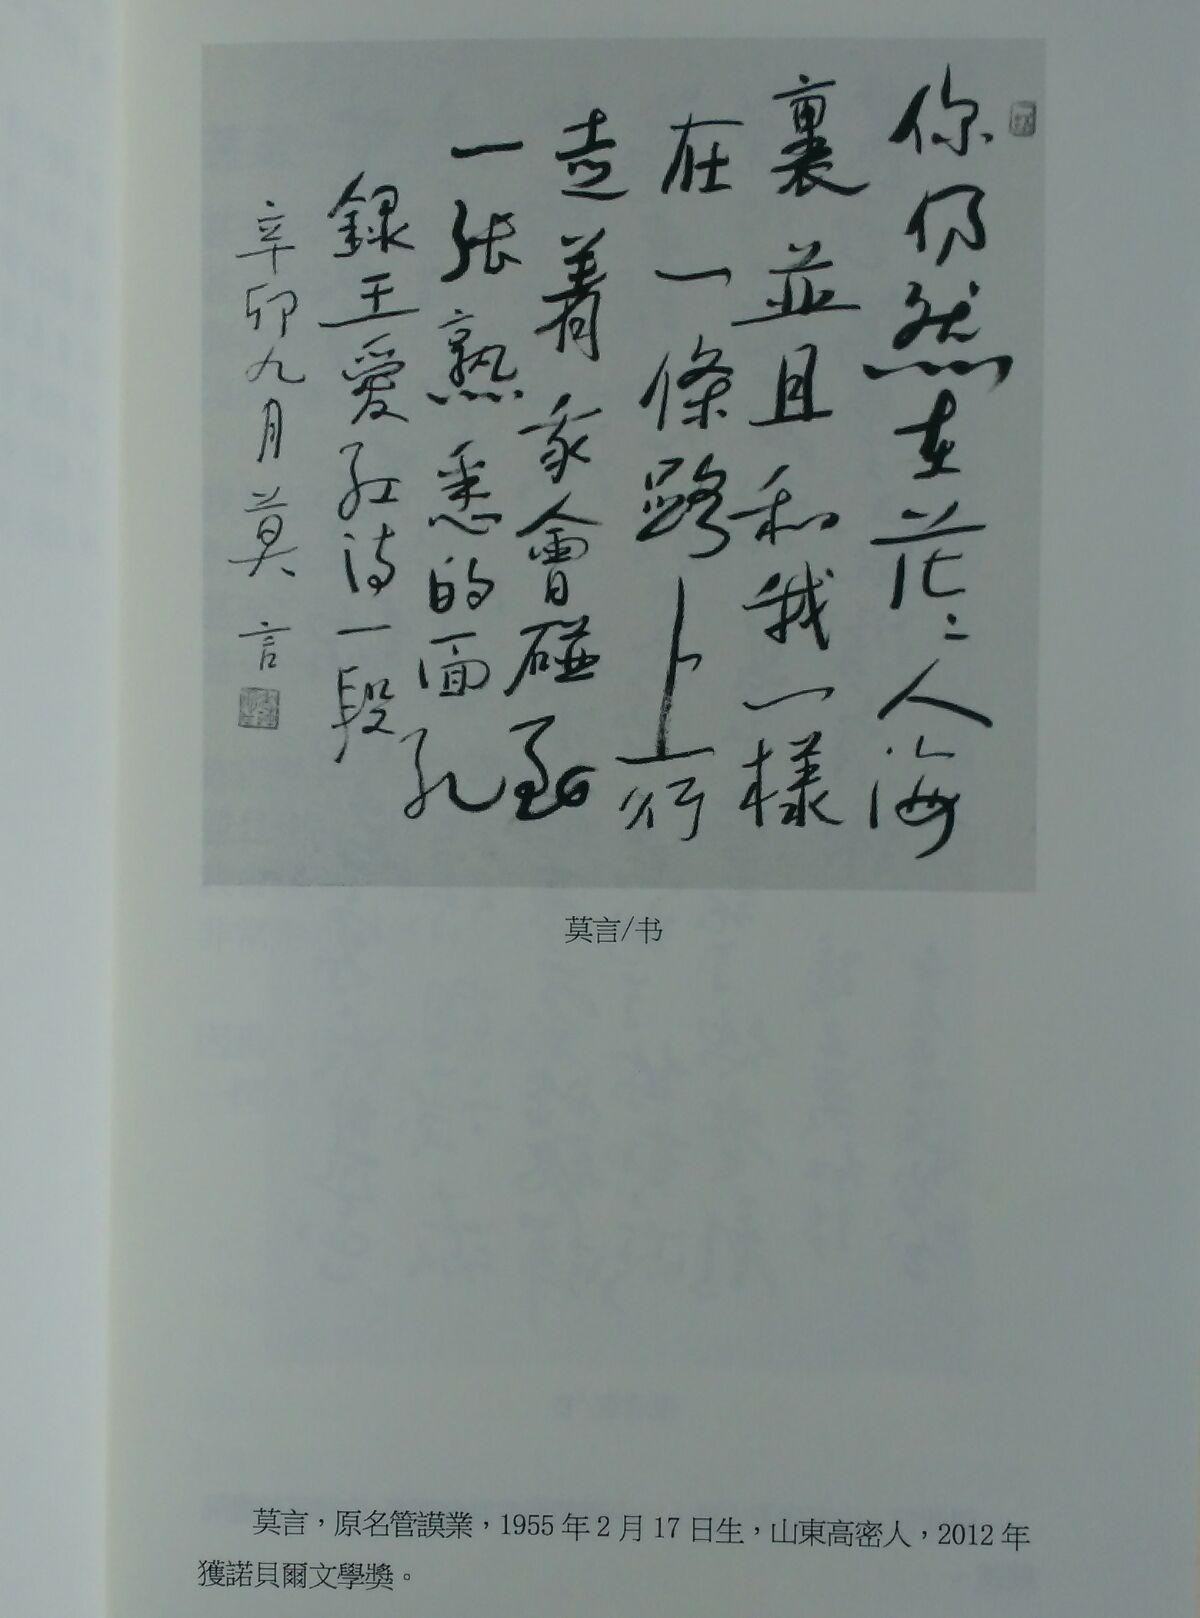 你仍然在茫〻人海
裏並且和我一樣
在一條路上行
走着我會碰到
一張熟悉的面孔
錄王愛紅詩一段
辛卯九月莫言
莫言/书
莫言，原名管謨業，1955年2月17日生，山東高密人，2012年
獲諾貝爾文學獎。